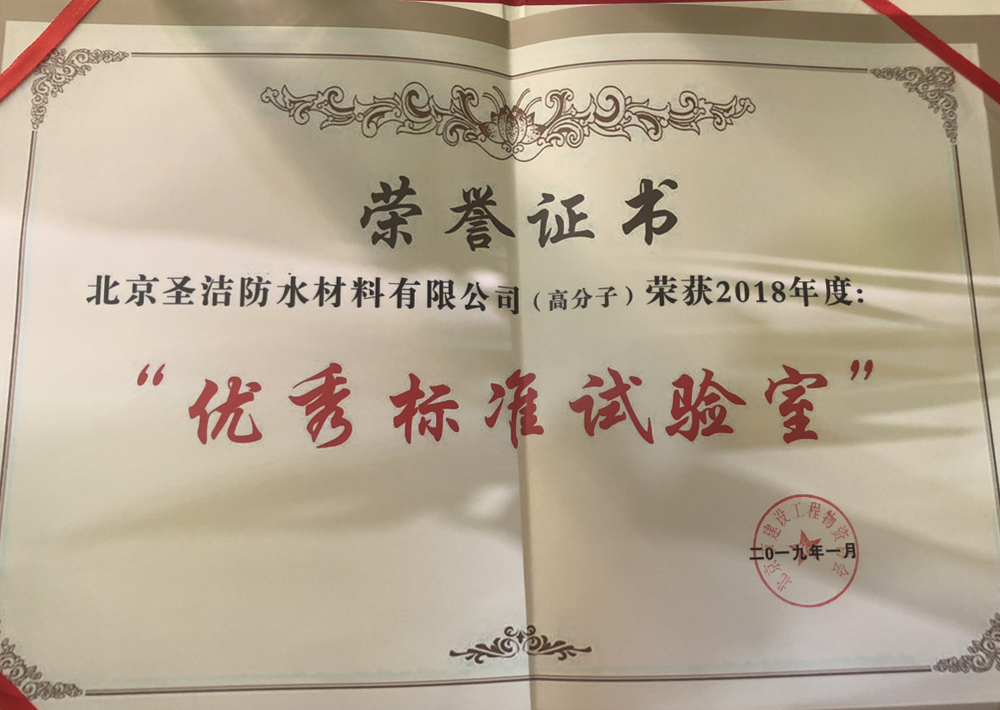 荣誉证书
北京圣洁防水材料有限公司（高分子）荣获2018年度：
“优秀标准试验室”
二0一九年一月
北京 建设工程物资 会